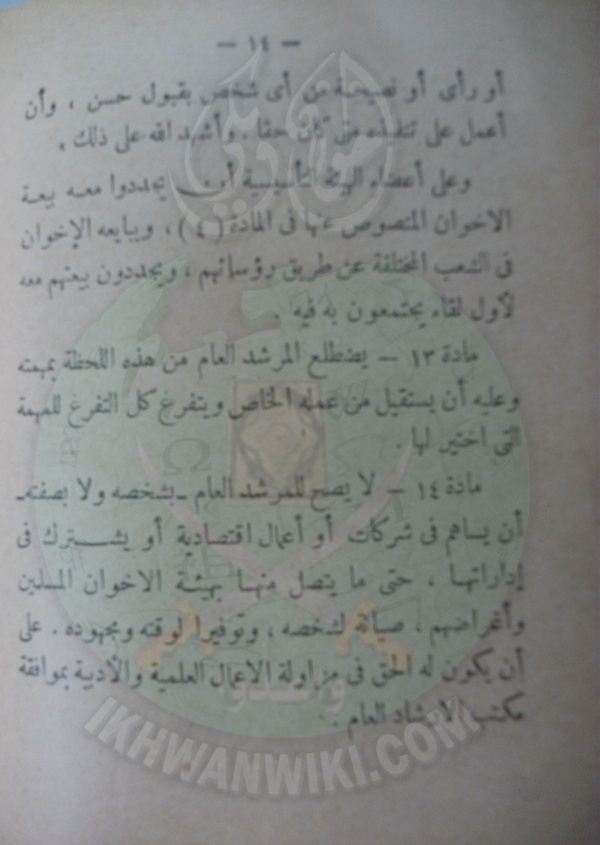 — ١٤ —
أو رأى أو نصيحة من أى شخص بقبول حسن ، وأن
أعمل على تنفيذه متى كان حقا . وأشهد الله على ذلك .
وعلى أعضاء الهيئة التأسيسية أن يجددوا معه بيعة
الاخوان المنصوص عنها فى المادة ( ٤ ) ، ويبايعه الإخوان
فى الشعب المختلفة عن طريق رؤسائهم ، ويجددون بيعتهم معه
لأول لقاء يجتمعون به فيه .
مادة ١٣ — يضطلع المرشد العام من هذه اللحظة بمهمته
وعليه أن يستقيل من عمله الخاص ويتفرغ كل التفرغ للمهمة
التى اختير لها .
مادة ١٤ — لا يصح للمرشد العام ـ بشخصه ولا بصفته ـ
أن يساهم فى شركات أو أعمال اقتصادية أو يشترك فى
إداراتها ، حتى ما يتصل منها بهيئة الاخوان المسلمين
وأغراضهم ، صيانة لشخصه ، وتوفيرا لوقته ومجهوده . على
أن يكون له الحق فى مزاولة الاعمال العلمية والأدبية بموافقة
مكتب الارشاد العام .
إخوان ويكي
وأعدوا
IKHWANWIKI.COM